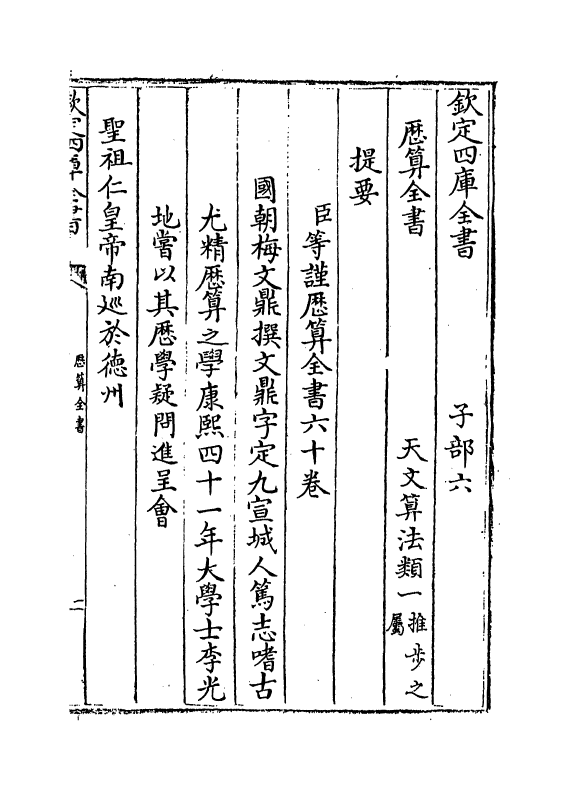 欽定四庫全書 子部六
歴算全書 天文算法類一推步之屬
提要
臣等謹歴算全書六十卷
國朝梅文鼎撰文鼎字定九宣城人篤志嗜古
尤精歴算之學康熙四十一年大學士李光
地嘗以其歴學疑問進呈會
聖祖仁皇帝南巡於德州
欽定四庫全書
歴算全書
二